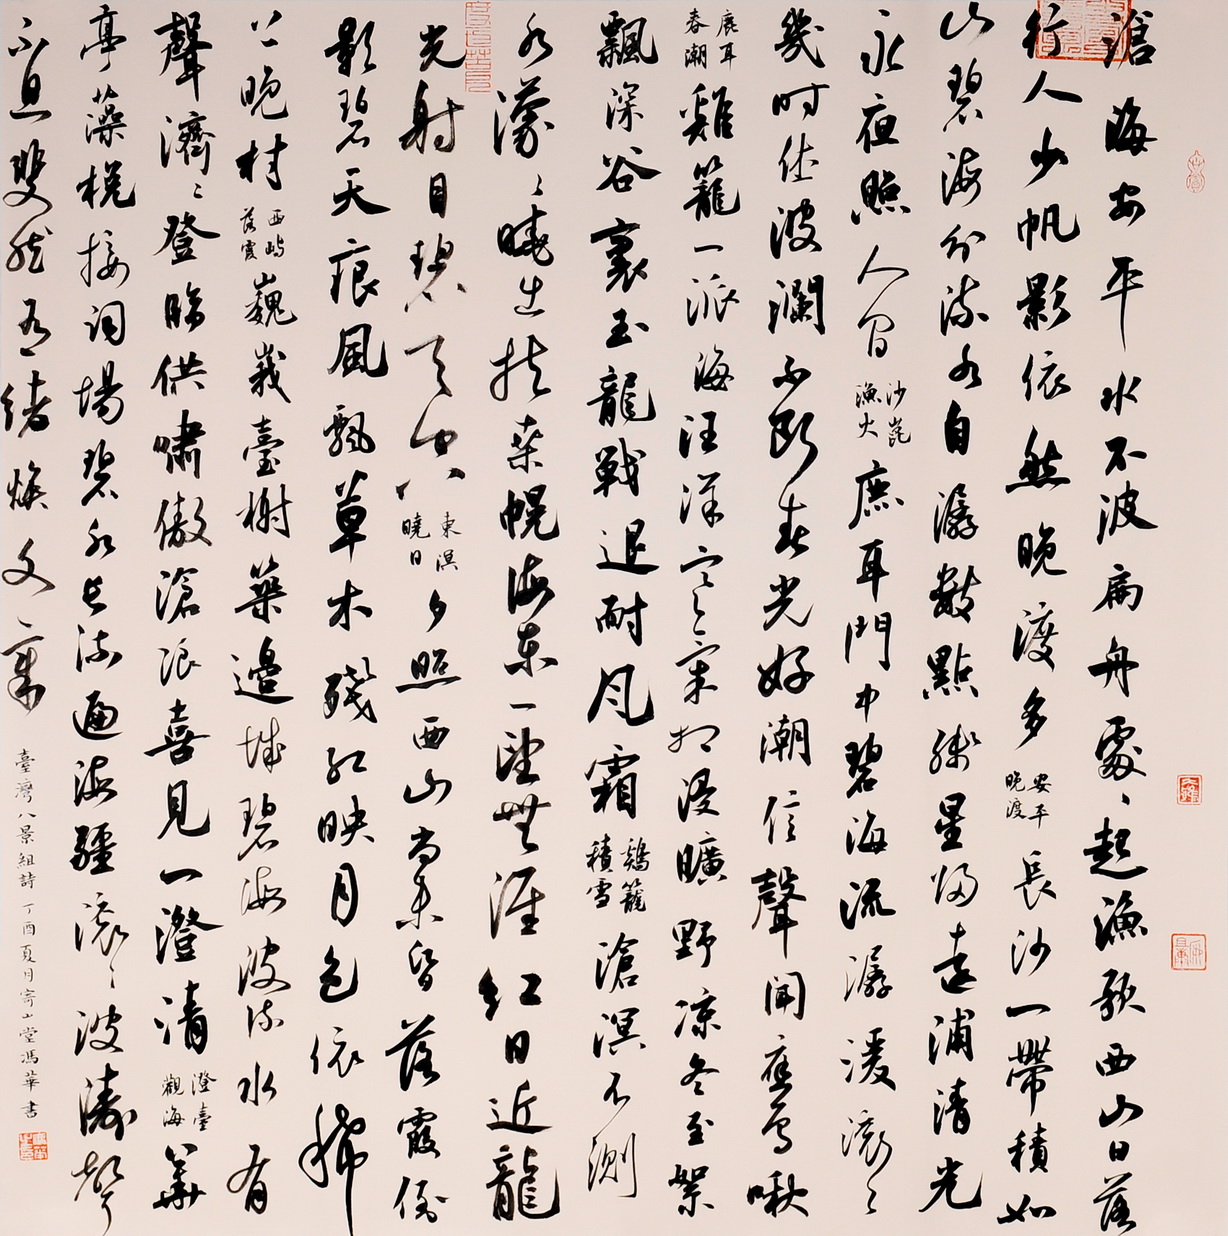 滄海安平水不波扁舟處々起漁歌西山日落
行人少帆影依然晚渡多 安平晚渡 長沙一帶積如
山碧海分流水自潺數點殘星歸遠浦清光
永夜照人間 沙崑漁火 鹿耳門中碧海流潺湲滾々
幾時休波瀾不斷春光好潮信聲聞應鳥啾
鹿耳春潮 雞籠一派海汪洋相浸曠野凉冬至絮
飄深谷裏玉龍戰退耐風霜 鷄籠積雪 滄溟不測
水濛々曉出扶桑幌海東一望無涯紅日近龍
光射目碧天空 東溟曉日 夕照西山尚未昏落霞倒
影碧天痕風飄草木殘紅映月色依稀
上晚村 西嶼落霞 巍峩臺榭築邊城碧海波流水有
聲濟々登臨供嘯傲滄浪喜見一澄清 澄臺觀海 華
亭藻梲接詞場碧水長流遍海疆滾々波濤聲
不息斐然有緒煥文章 臺灣八景組詩 丁酉夏月寄山堂馮華書